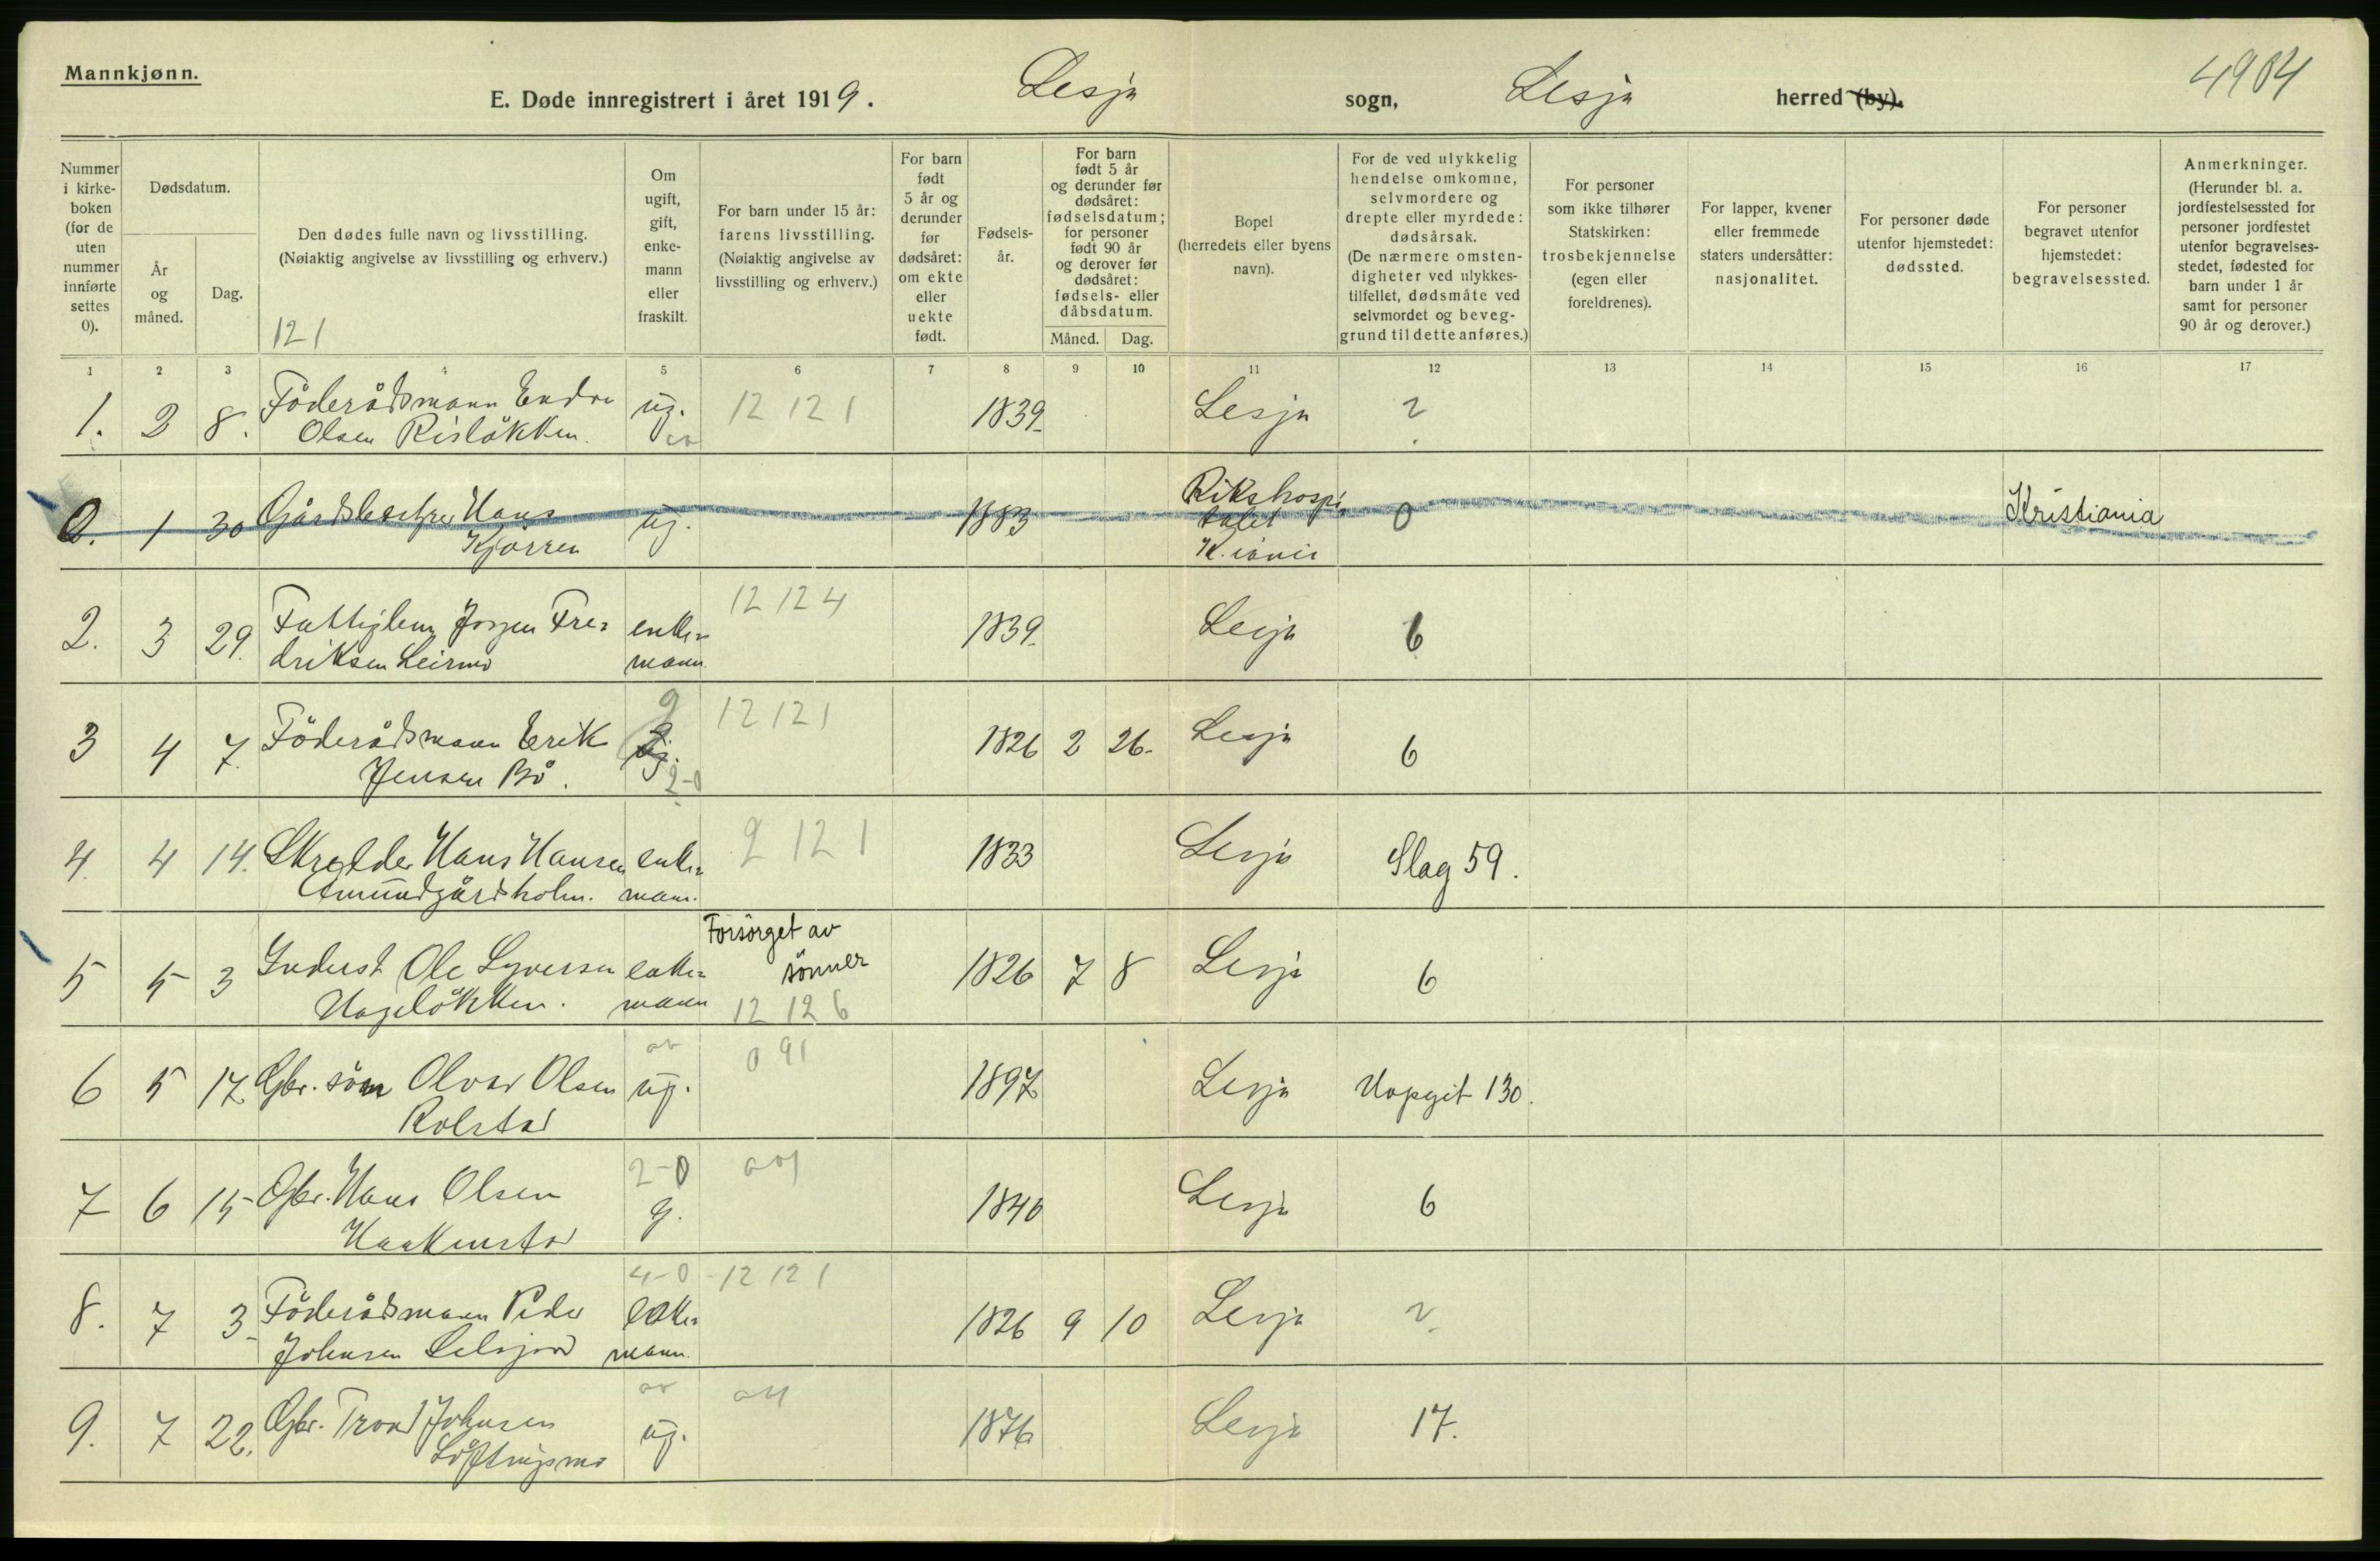 Mannkjønn.
E. Døde innregistrert i året 1919. Lesja sogn, Lesja herred (by). 4904
Nummer i kirke- boken (for de uten nummer innførte settes 0).
Dødsdatum.
År og måned.
Dag.
Den dødes fulle navn og livsstilling.
(Nøiaktig angivelse av livsstilling og erhverv.)
121
Om ugift, gift, enke- mann eller fraskilt.
For barn under 15 år: farens livsstilling. (Nøiaktig angivelse av livsstilling og erhverv.)
For barn født 5 år og derunder før dødsåret: om ekte eller uekte født.
Fødsels- år.
For barn født 5 år og derunder før dødsåret: fødselsdatum; for personer født 90 år og derover før dødsåret: fødsels- eller dåbsdatum.
Måned. Dag.
Bopel (herredets eller byens navn).
For de ved ulykkelig hendelse omkomne, selvmordere og drepte eller myrdede: dødsårsak. (De nærmere omsten- digheter ved ulykkes- tilfellet, dødsmåte ved selvmordet og beveg- grund til dette anføres.)
For personer som ikke tilhører Statskirken: trosbekjennelse (egen eller foreldrenes).
For lapper, kvener eller fremmede staters undersåtter: nasjonalitet.
For personer døde utenfor hjemstedet: dødssted.
For personer begravet utenfor hjemstedet: begravelsessted.
Anmerkninger. (Herunder bl. a. jordfestelsessted for personer jordfestet utenfor begravelses- stedet, fødested for barn under 1 år samt for personer 90 år og derover.)
1 2 3 4 5 6 7 8 9 10 11 12 13 14 15 16 17
1. 2 8. Föderådsmann Endre ug. 12 12 1 1839 Lesja ?
Olsen Rislökken.
0. 1 30 Gårdsbestyrer Hans ug. 1883 Rikshospi- 0 Kristiania
Kjørren talet
K.iania
2. 3 29. Fattiglem Jörgen Fre- enke- 12 12 4 1839 Lesja 6
driksen Leirmo mann
3 4 7. Föderådsmann Erik g 12 12 1 1826 2 26. Lesja 6
Jensen Bö. 2-0
4. 4 14. Skredder Hans Hansen enke- 2 12 1 1833 Lesja Slag 59.
Amundgårdsholm. mann.
5 5 3 Inderst Ole Syversen enke- Forsörget av 1826 7 8 Lesja 6
Hagelökken. mann sönner
12 12 6
6 5 17. Gbr. sön Olvar Olsen ug. 0 91 1897 Lesja Uopgit 130.
Rolstad
7 6 15 Gbr. Hans Olsen 2-0 g. 1846 Lesja 6
Haakenstad
8. 7 3. Föderådsmann Peder 4-0 enke- 12 12 1 1826 9 10 Lesja ?
Johnsen Lelsjord mann.
9. 7 22. Gbr. Trond Johnsen ug. 1876 Lesja 17.
Löftingsmo